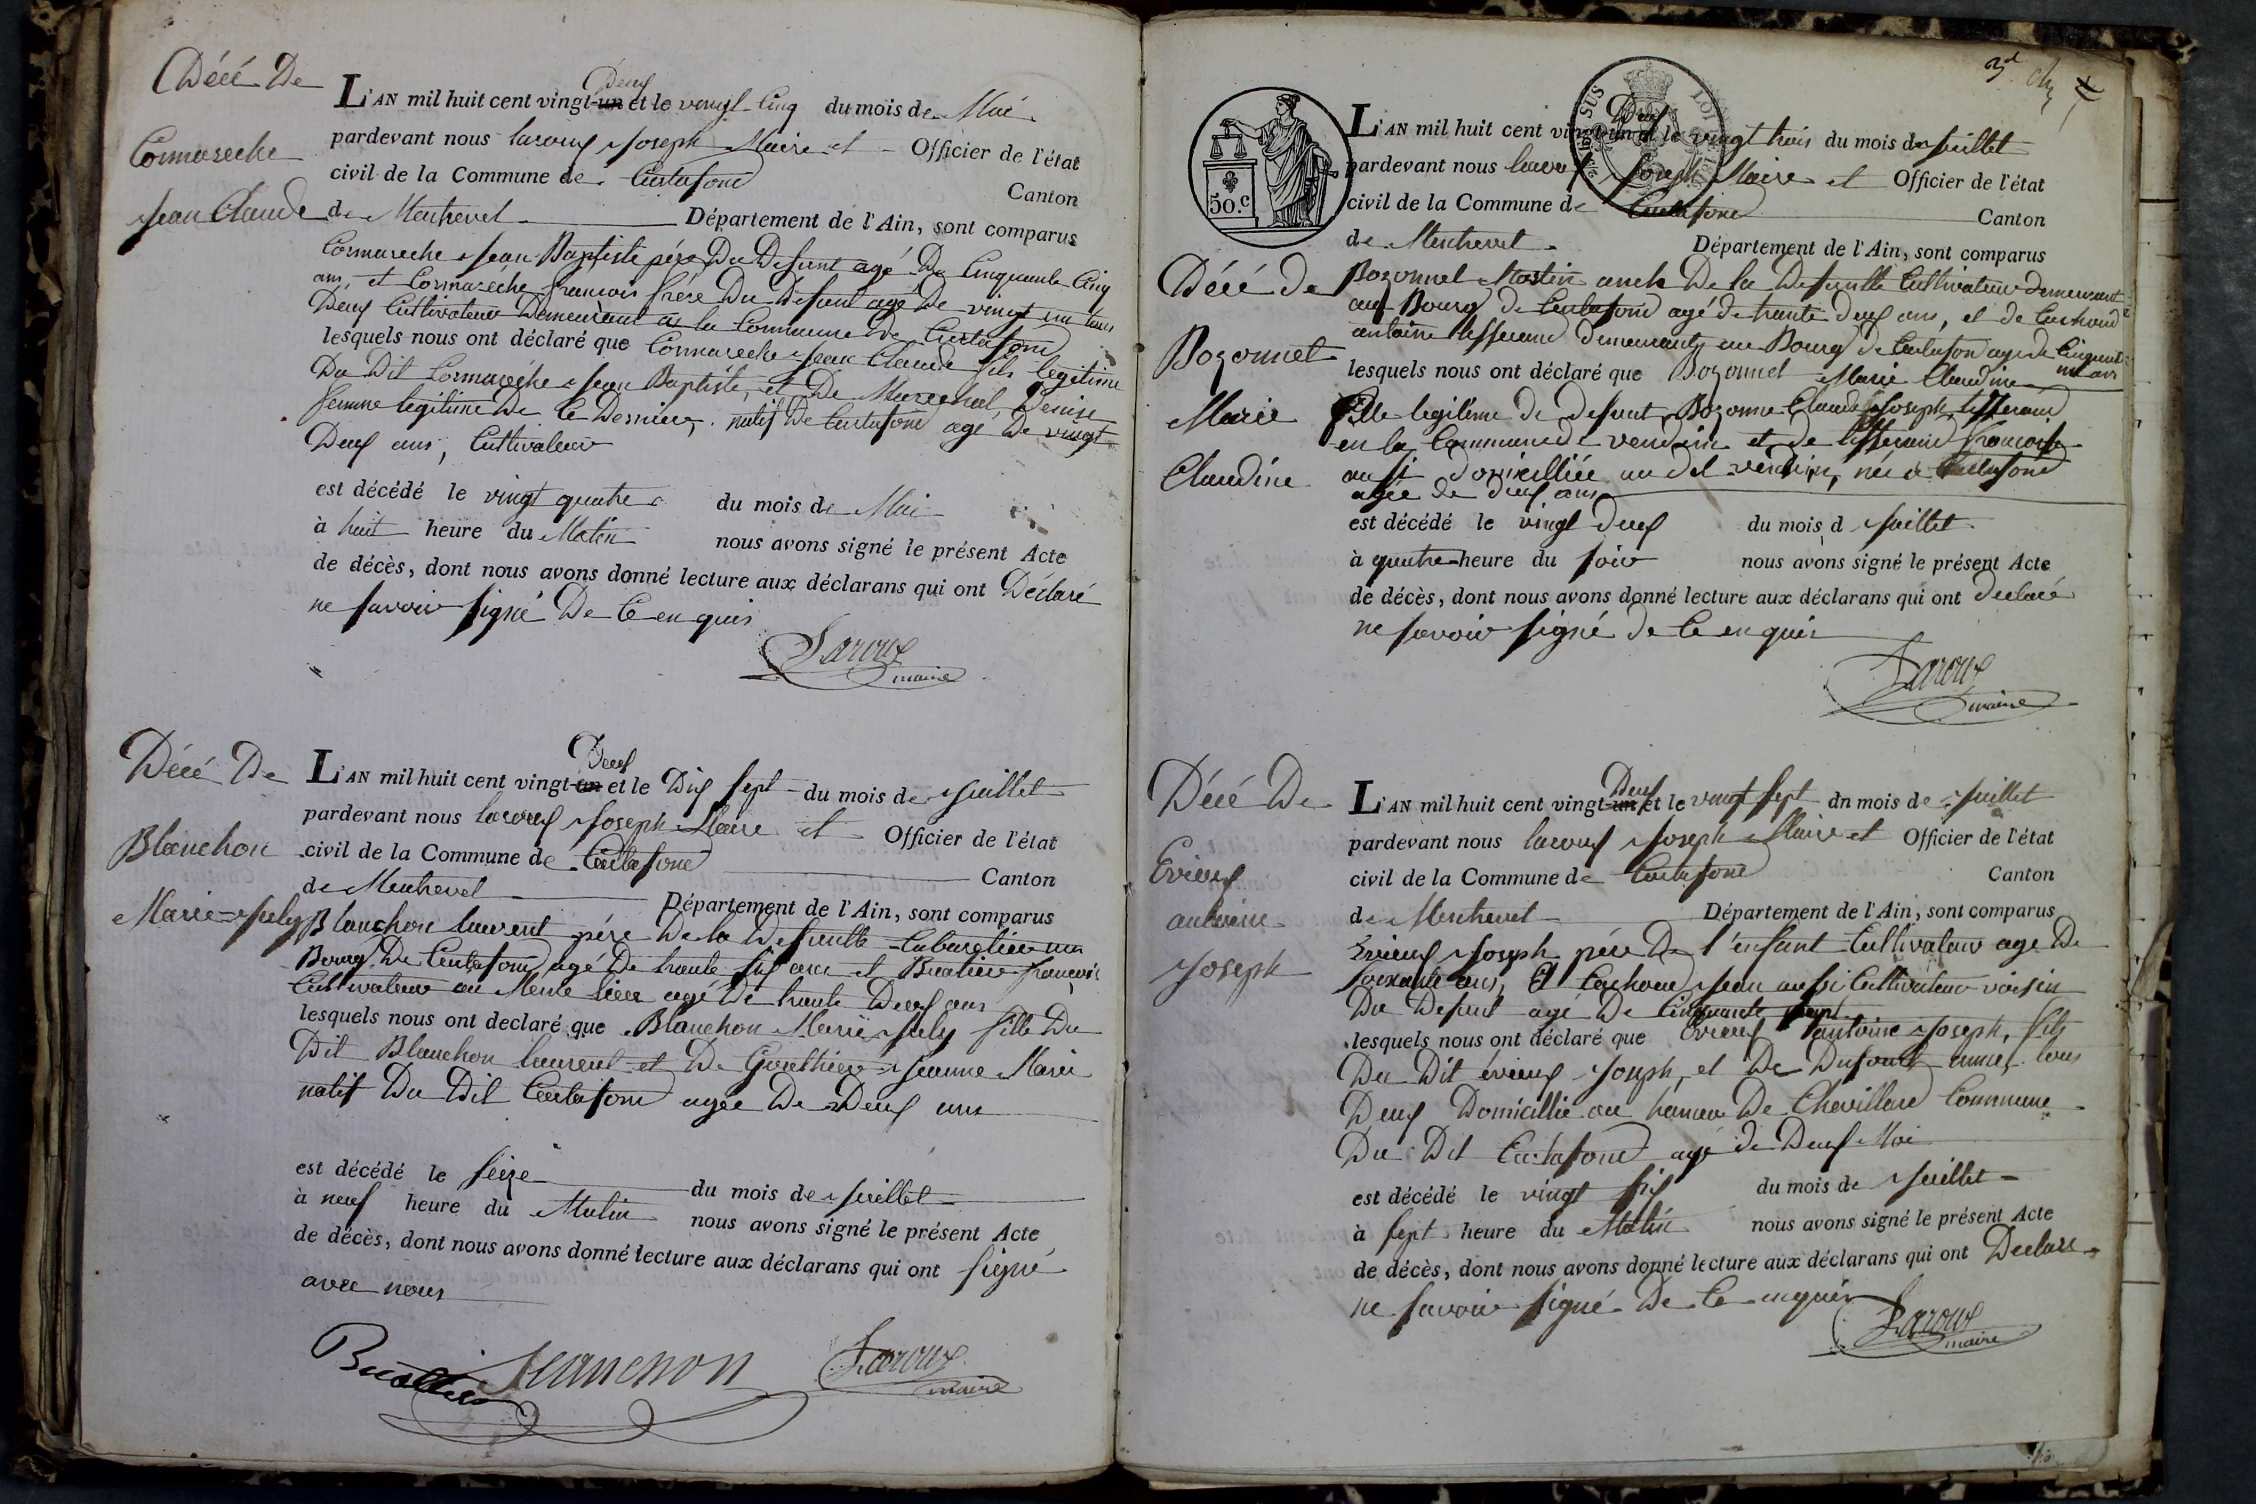 Décé De
Cormareche
Jean Claude
L'AN mil huit cent vingt-un Deux et le vingt Cinq du mois de Mai
pardevant nous laroux Joseph Maire et Officier de l'état
civil de la Commune de Curtafond
Canton
de Montrevel Département de l'Ain, sont comparus
Cormareche Jean Baptiste père Du Defunt agé De Cinquante Cinq
ans, et Cormaréche francois frére Du défunt agé De vingt un tous
Deux Cultivateur Demeurant a la Commune De Curtafond
lesquels nous ont déclaré que Cormareche Jean Claude fils legitime
Du Dit Cormaréche Jean Baptiste, et De Marechal, Denise
femme legitime De Ce Dernier, natif De Curtafond agé De vingt
Deux ans, Cultivateur
est décédé le vingt quatre du mois de Mai
à huit heure du Matin nous avons signé le présent Acte
de décès, dont nous avons donné lecture aux déclarans qui ont Déclaré
ne savoir signé De Ce enquis
Laroux
maire
Décé De
Blanchon
Marie July
L'AN mil huit cent vingt-un Deux et le Dix sept du mois de Juillet
pardevant nous laroux Joseph Maire et Officier de l'état
civil de la Commune de Curtafond
Canton
de Montrevel Département de l'Ain, sont comparus
Blanchon laurent père De la Defunte Cabaretier au
Bourg De Curtafond agé De trante six ans et Buatier francois
Cultivateur au Meme lieu agé De trante Deux ans
lesquels nous ont declaré que Blanchon Marie July fille Du
Dit Blanchon laurent et De Gouthier Jeanne Marie
natif Du Dit Curtafond agée De Deux ans
est décédé le seize du mois de Juillet
à neuf heure du Matin nous avons signé le présent Acte
de décès, dont nous avons donné lecture aux déclarans qui ont signé
avec nous
Buattier Blanchon Laroux
maire
3e
50.c
Décé de
Bozonnet
Marie
Claudine
L'AN mil huit cent vingt-un Deux et le vingt trois du mois de Juillet
pardevant nous laroux Joseph Maire et Officier de l'état
civil de la Commune de Curtafond
Canton
de Montrevel Département de l'Ain, sont comparus
Bozonnet Martin oncle De la Defunte Cultivateur demeurant
au Bourg de Curtafond agé de trante deux ans, et de Cochond
antoine tisserand demeurant au Bourg de Curtafond agé de Cinquante
un ans
lesquels nous ont déclaré que Bozonnet Marie Claudine
fille legitime de defunt Bozonne Claude Joseph tisserand
en la Commune de vendein et de tisserand francoise
aussi domicilliée au dit vendein, née a Curtafond
agée de deux ans
est décédé le vingt deux du mois d Juillet
à quatre heure du soir nous avons signé le présent Acte
de décès, dont nous avons donné lecture aux déclarans qui ont declaré
ne savoir signé de Ce enquis
Laroux
maire
Décé De
Evieux
antoine
Joseph
L'AN mil huit cent vingt-un Deux et le vingt sept dn mois de Juillet
pardevant nous laroux Joseph Maire et Officier de l'état
civil de la Commune de Curtafond
Canton
de Montrevel Département de l'Ain, sont comparus
Evieux Joseph père De l'enfant Cultivateur agé De
soixante ans, Et Cochond Jean aussi Cultivateur voisin
Du Defunt agé De Cinquante sept
lesquels nous ont déclaré que Evieux antoine Joseph, fils
Du Dit évieux Joseph, et De Dufour anne, tous
Deux Domicillié au hameau De Chevillard Commune
Du Dit Curtafond agé de Deux Moi
est décédé le vingt six du mois de Juillet
à sept heure du Matin nous avons signé le présent Acte
de décès, dont nous avons donné lecture aux déclarans qui ont Declaré
ne savoir signé De Ce enquis
Laroux
maire